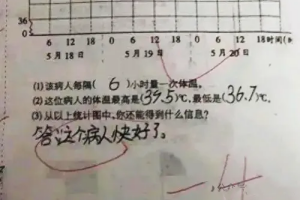 36
0
6 12 18 6 12 18 6 12 18 时间(时)
5月18日 5月19日 5月20日
(1)该病人每隔(6)小时量一次体温。
(2)这位病人的体温最高是(39.5)℃,最低是(36.7)℃。
(3)从以上统计图中,你还能得到什么信息?
答:这个病人快好了。